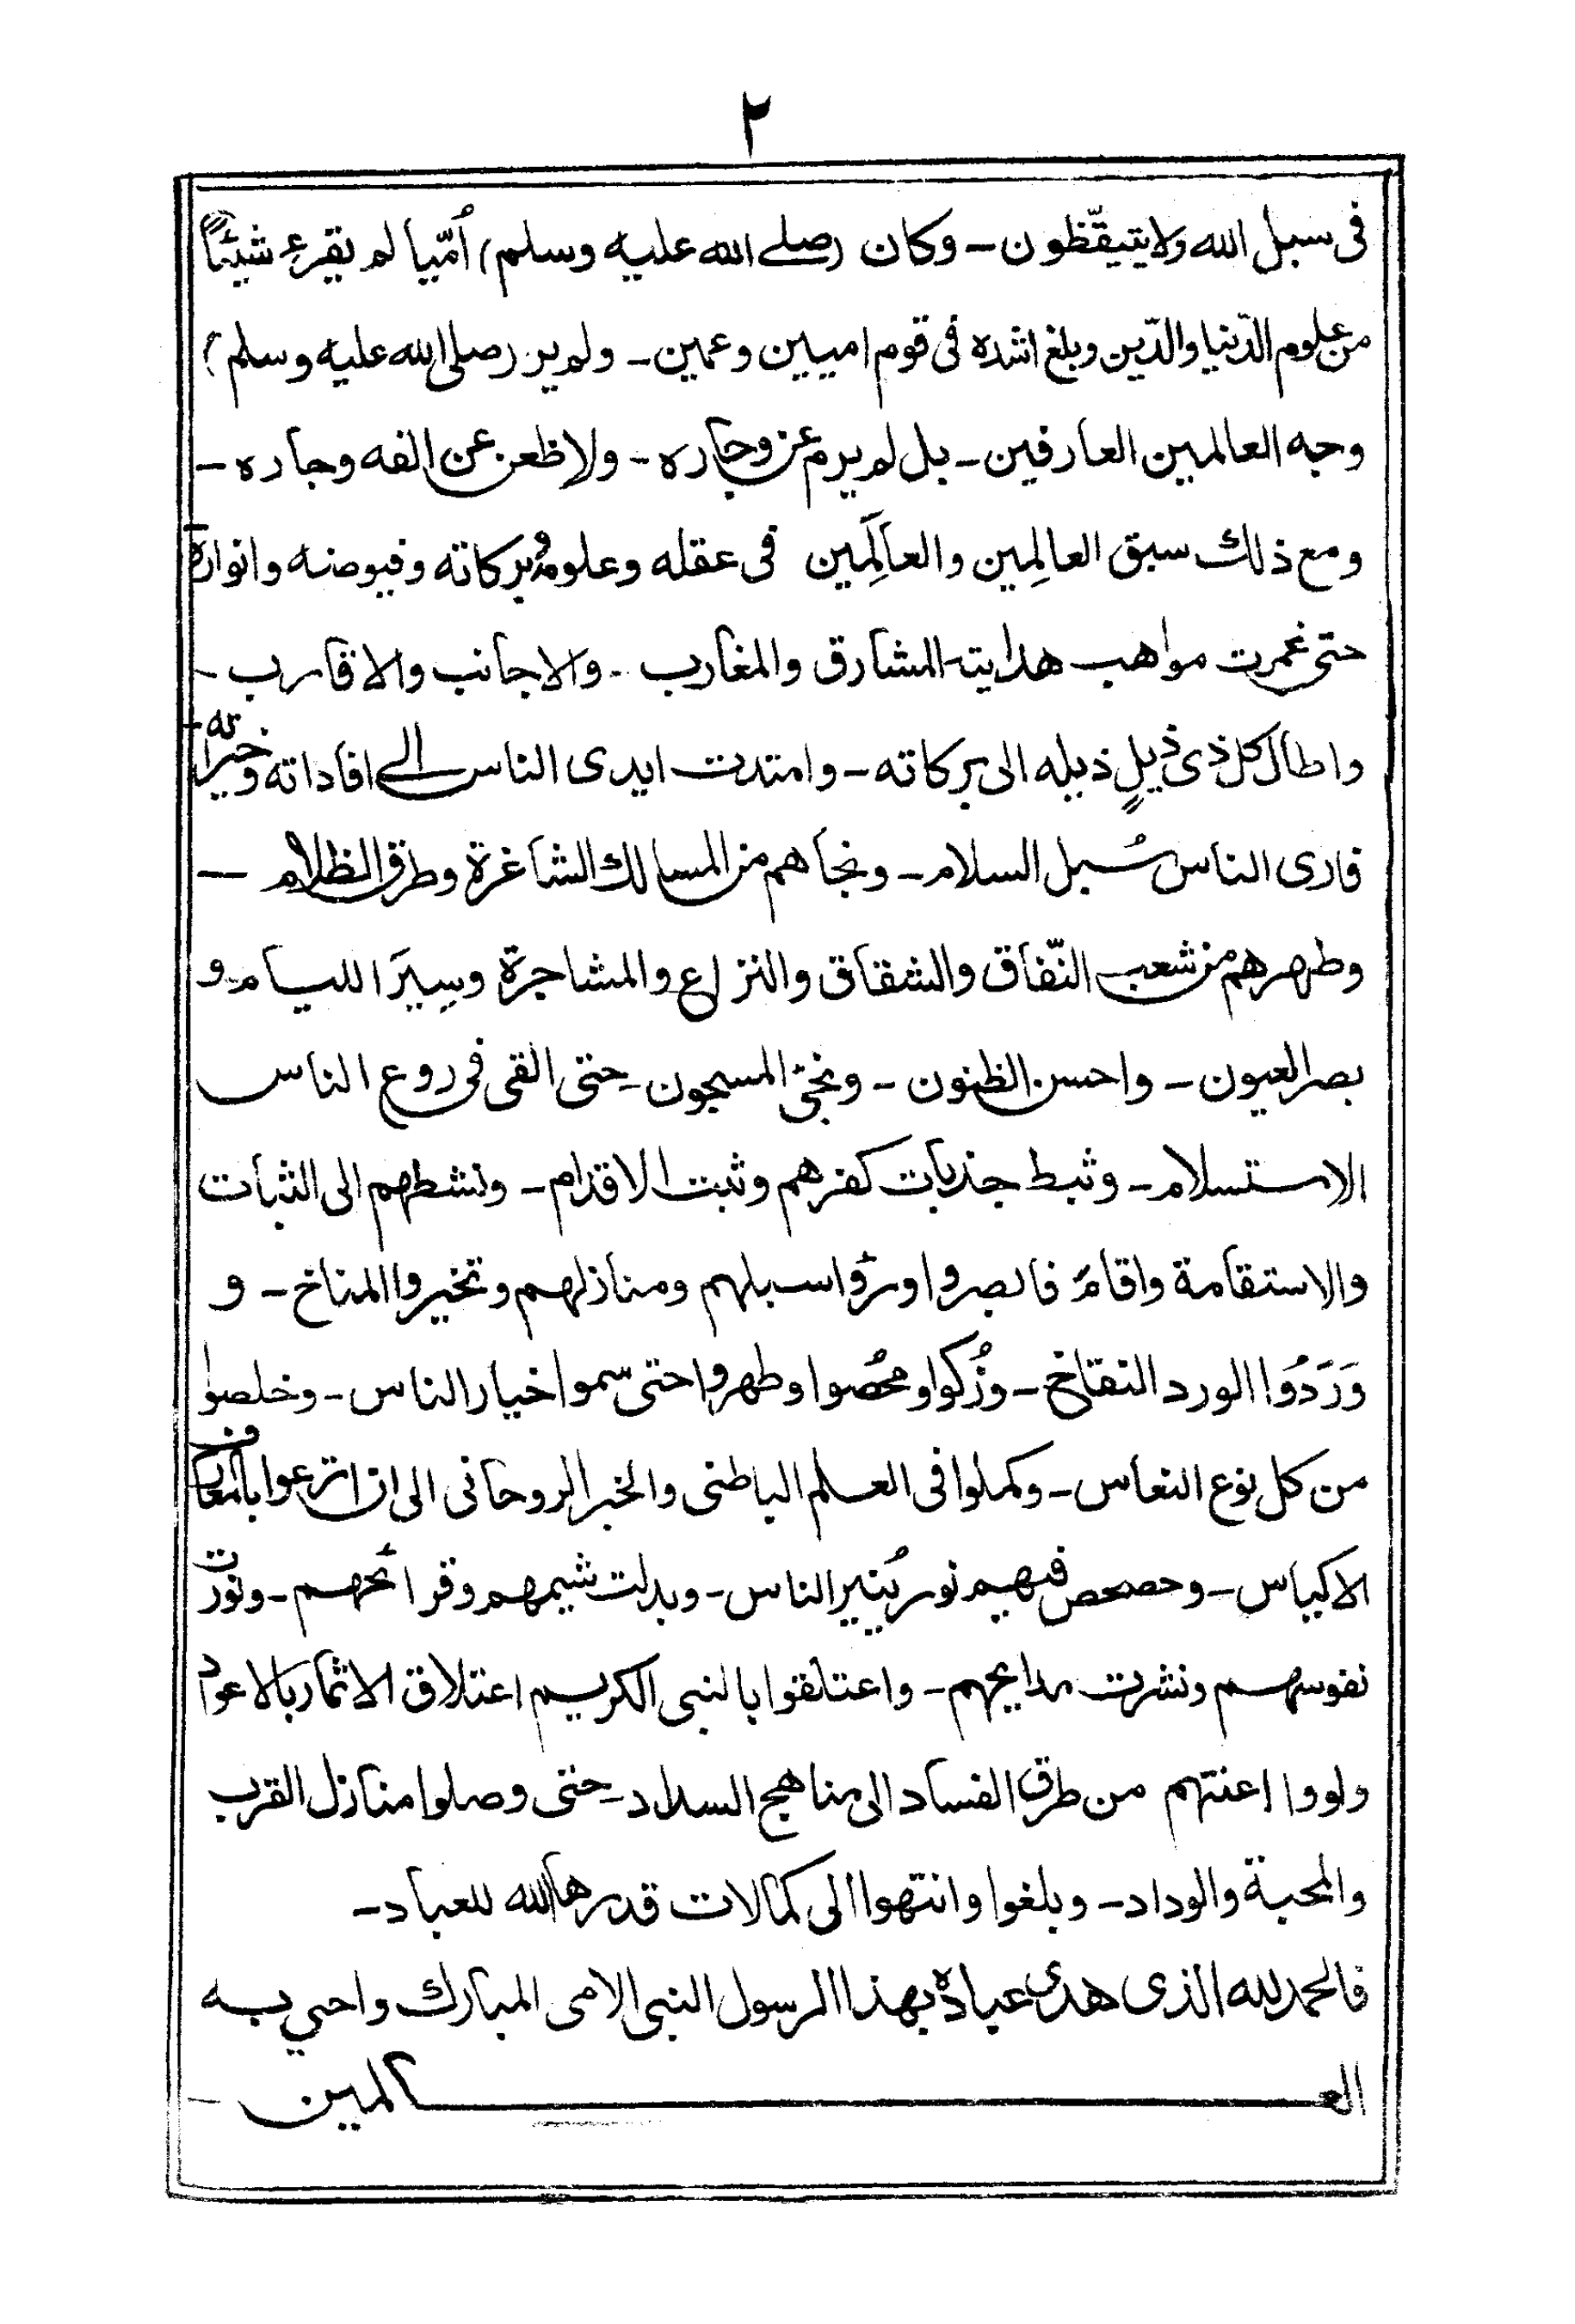 ٢
فى سبل الله ولا يتيقّظون - وكان (صلے الله عليه وسلم) اُمّيا لم يقرء شيئاً
من علوم الدّنيا والدّين وبلغ اشده فى قوم اميين وعمين - ولم ير (صلى الله عليه وسلم)
وجه العالمين العارفين - بل لم يرم عن وجاره - ولا ظعن عن الفه وجاره -
ومع ذلك سبق العالِمين والعالَمين فى عقله وعلومهٖ وبركاته وفيوضه وانواره
حتى غمرت مواهب هدايته المشارق والمغارب - والاجانب والاقارب -
واطال كل ذى ذيلٍ ذيله الى بركاته - وامتدت ايدى الناس الے افاداته وخيراته -
فارى الناس سُبل السلام - ونجاهم من المسالك الشاغرة وطرق الظلام -
وطهرهم من شعب النّفاق والشقاق والنزاع والمشاجرة وسِيَر اللیام - و
بصر العيون - واحسن الظنون - ونجّى المسجون - حتى القى فى روع الناس
الاستسلام - وثبط جذبات كفرهم وثبت الاقدام - ونشطهم الى الثبات
والاستقامة واقام فابصروا ورؤا سبلهم ومنازلهم وتخيروا المناخ - و
وَرَدُوا الورد النقاخ - وزُكوا ومُحّصوا وطهروا حتى سّموا خيار الناس - وخلصوا
من كل نوع النعاس - وكملوا فى العلم الباطنى والخبر الروحانى الى ان اترعوا بالمعارف
الاكياس - وحصحص فيهم نور يُنير الناس - وبدلت شيمهم وقرائحهم - ونورت
نفوسهم ونشرت مدايحهم - واعتلقوا بالنبى الكريم اعتلاق الاثمار بالاعواد
ولووا اعنتهم من طرق الفساد الى مناهج السداد - حتى وصلوا منازل القرب
والمحبة والوداد - وبلغوا وانتهوا الى كمالات قدرها الله للعباد -
فالحمد لله الذى هدى عباده بهذا الرسول النبى الامى المبارك واحيي به
العالمين -